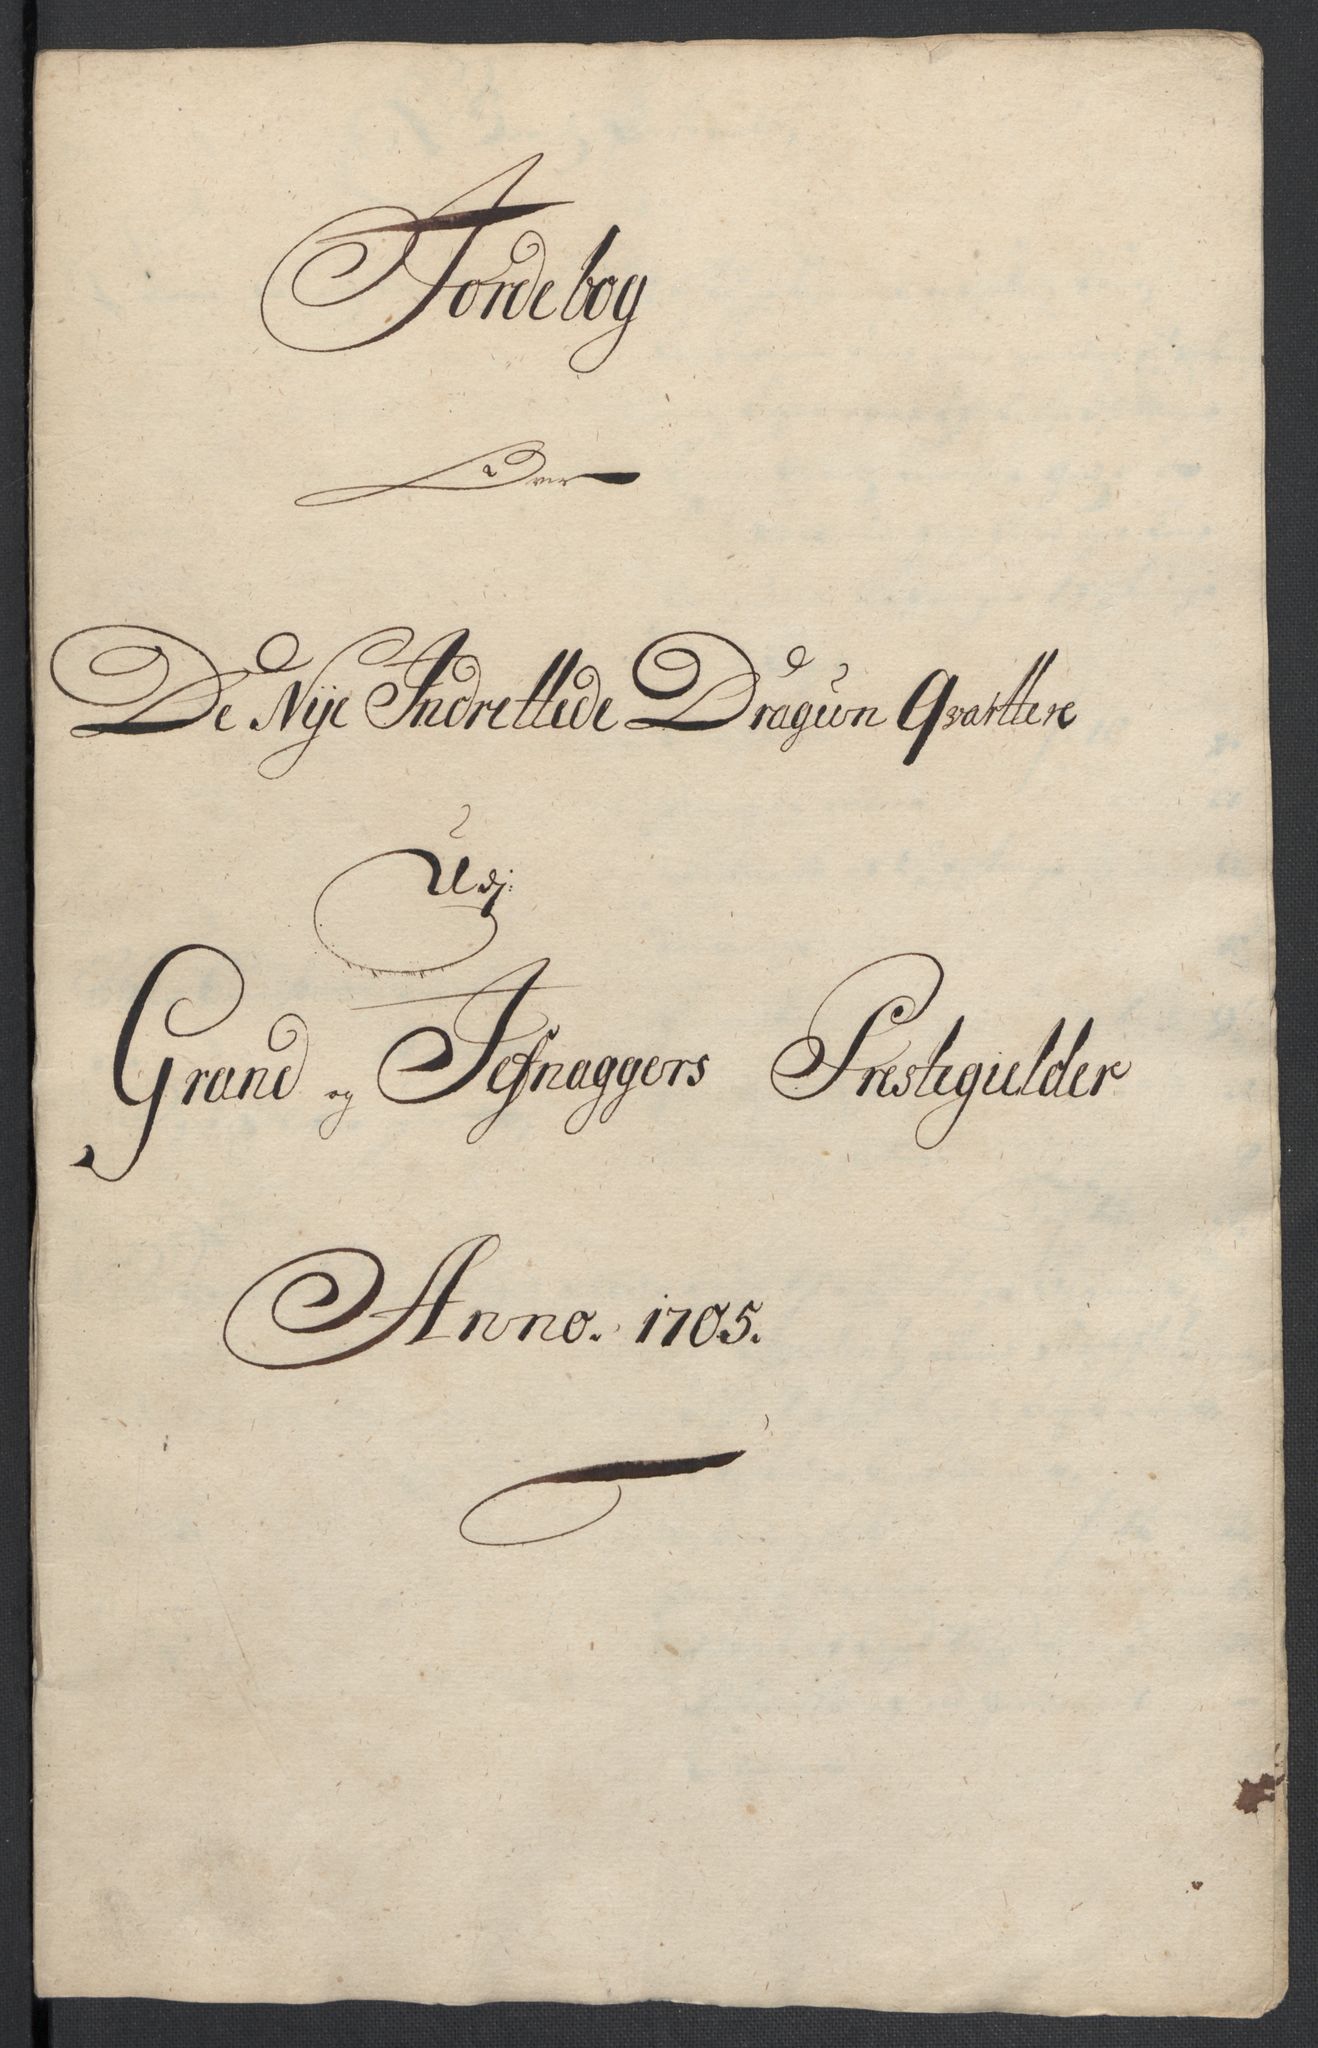 Jordebog
Over
De Nÿe Indrettede Dragŭn Qvartter
Udj
Grand og Jefnaggers Prestegielder
Anno. 1705.